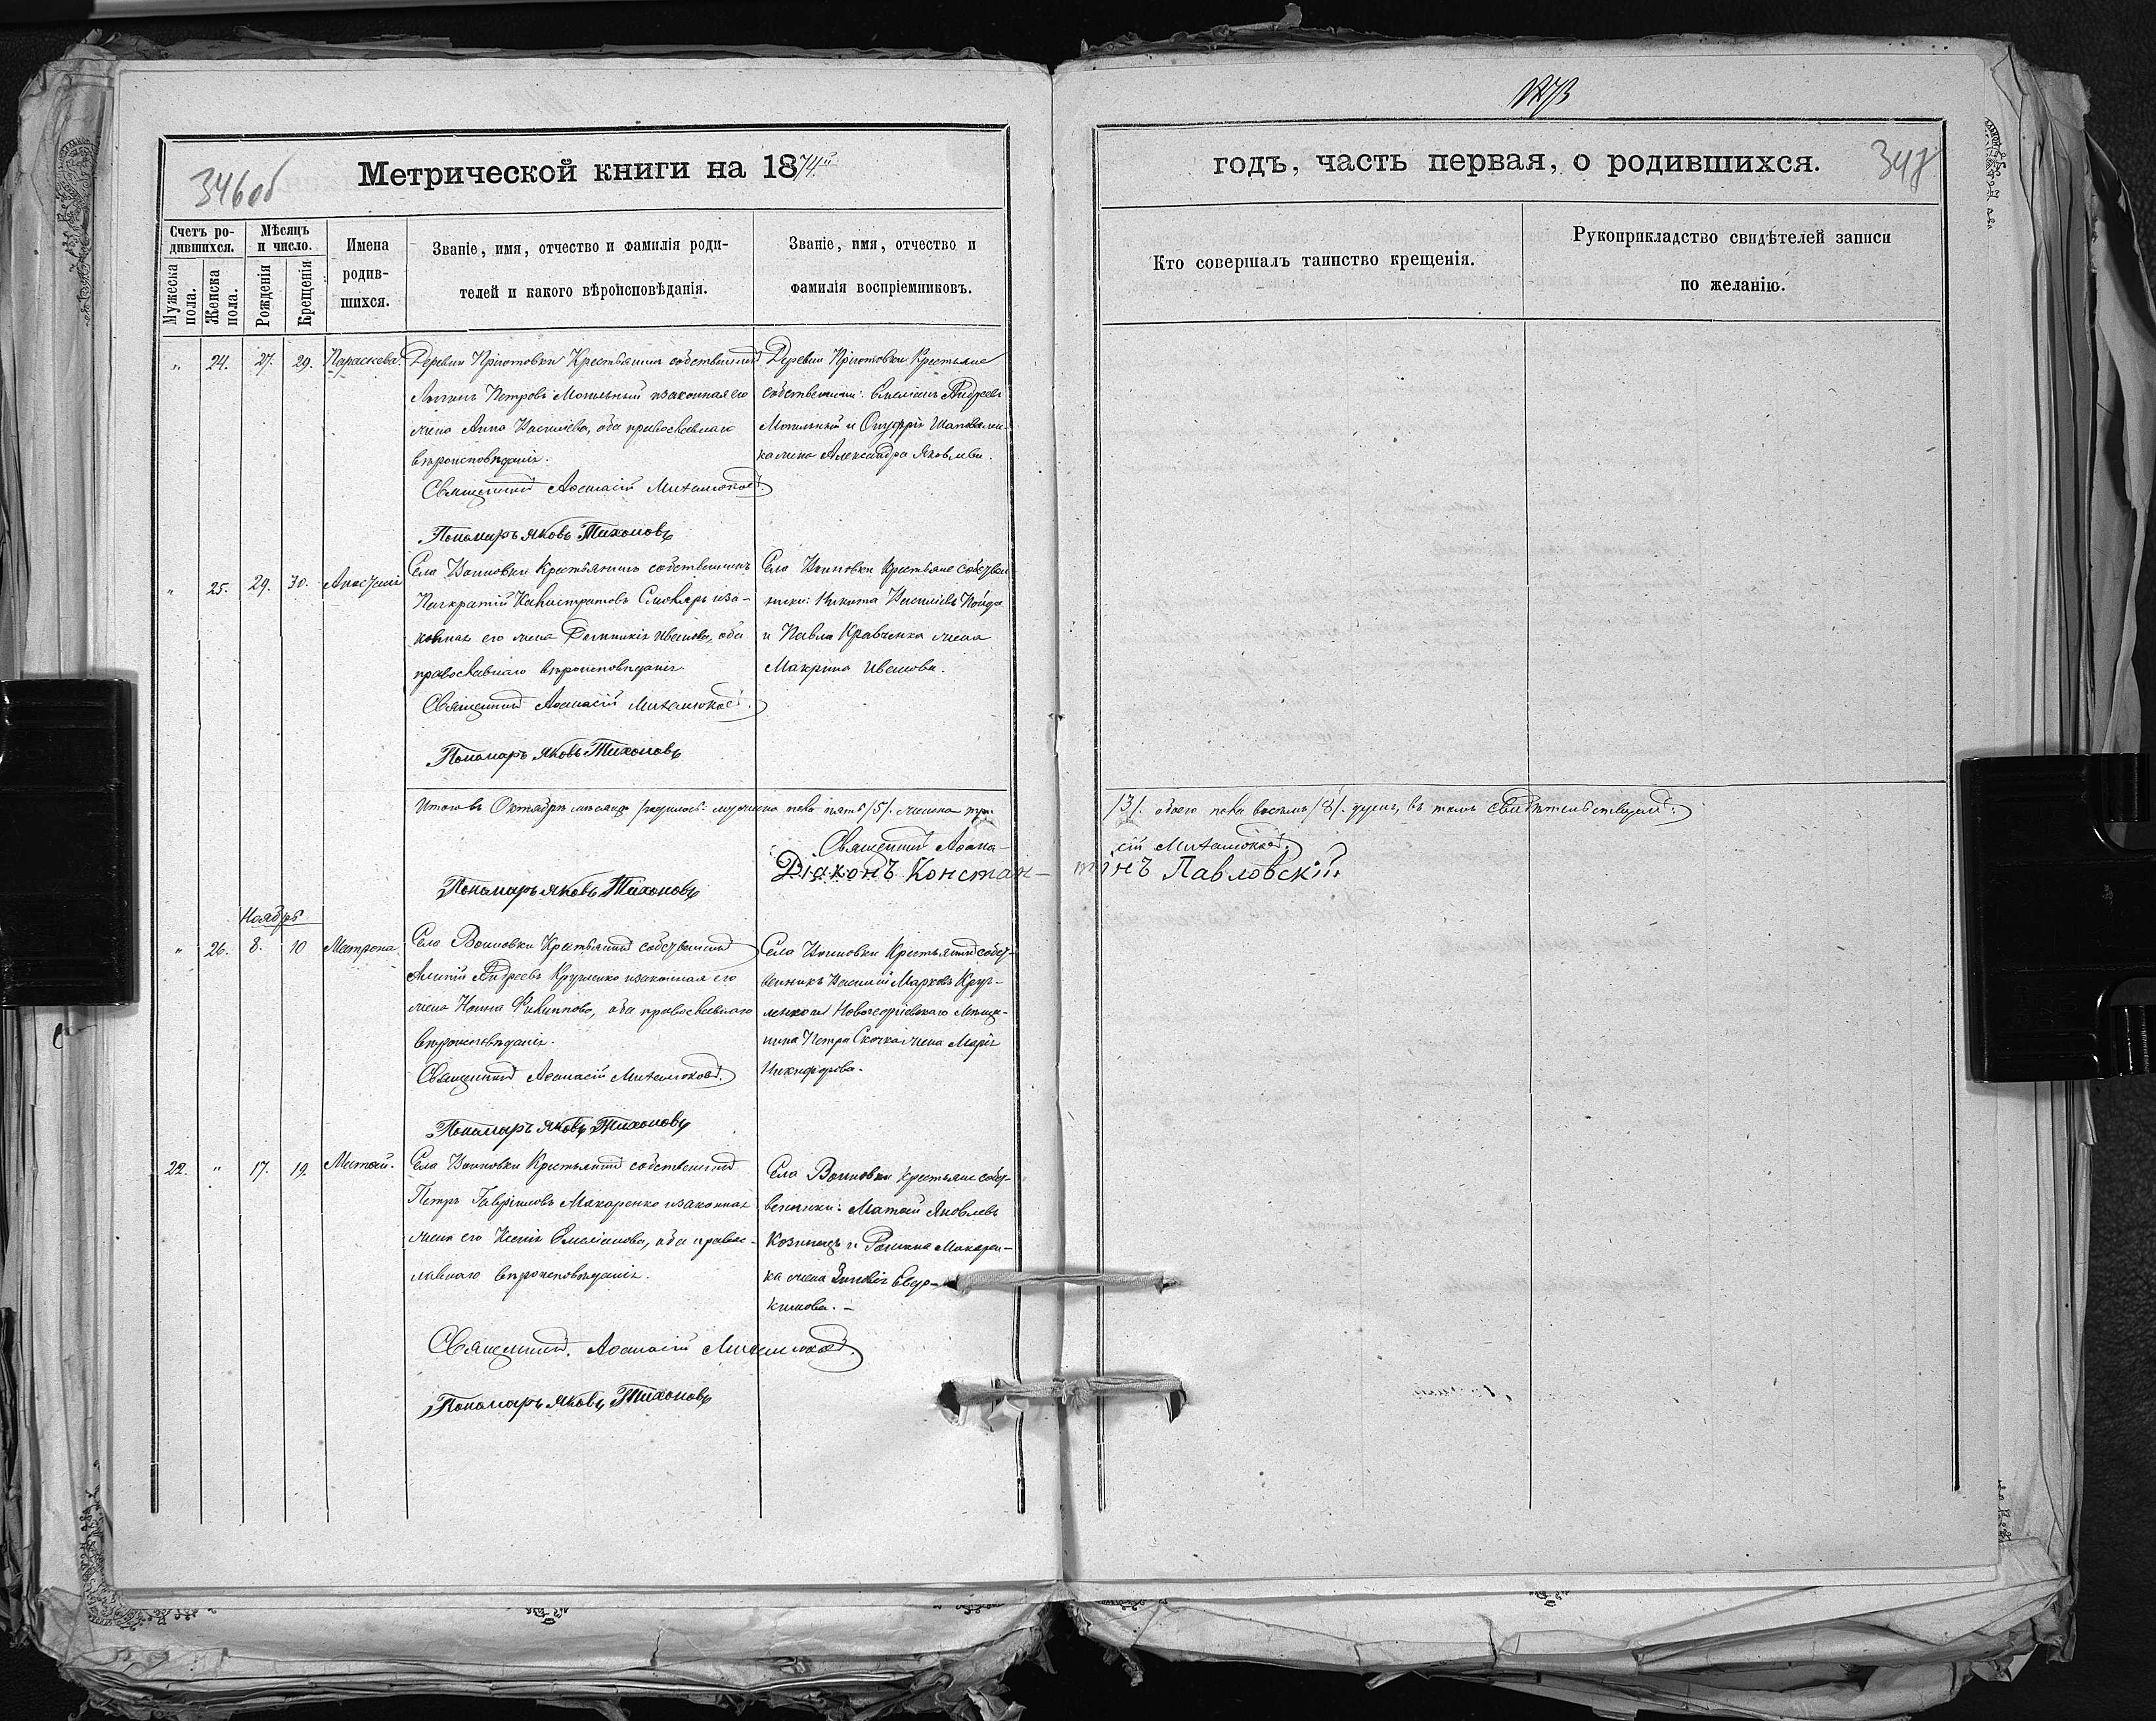 1873
346об
Метрической книги на 1874й
годъ, часть первая, о родившихся.
347
Счетъ родившихся.
Мужеска пола.
Женска пола.
Мѣсяцъ и число.
Рожденія
Крещенія
Имена родившихся.
Званіе, имя, отчество и фамилія родителей и какого вѣроисповѣданія.
Званіе, имя, отчество и фамилія воспріемниковъ.
Кто совершалъ таинство крещенія.
Рукоприкладство свидѣтелей записи
по желанію.
" 24. 27. 29. Параскева.
Деревни Крестьянинъ собственникъ
Петровъ Могильный и законная его
жена Анна Василіева, оба православнаго
вѣроисповѣданія.
Священникъ Аѳанасій
Пономарь Яковъ Тихоновъ
Деревни Крестьяне
собственники: Емеліанъ Андреевъ
Могильный и Онуфрія Шаповален-
ка жена Александра Яковлева.
" 25. 29. 30. Анастасія
Села Воиновки Крестьянинъ собственникъ
Панкратій Калистратовъ и за-
конная его жена Домникія Иванова, оба
православнаго вѣроисповѣданія.
Священникъ Аѳанасій
Пономарь Яковъ Тихоновъ
Села Воиновки Крестьяне собствен
ники: Никита Василіевъ
и Павла Кравченка жена
Макрина Иванова.
Итого въ Октябрѣ мѣсяцѣ родилось: мужеска пола пять /5/. женска три
/3/. обоего пола восемь /8/. душъ, въ томъ свидѣтельствуемъ.
Священникъ Аѳана-
сій
Діаконъ Констан-
тинъ Павловскій.
Пономарь Яковъ Тихоновъ
Ноябрь
" 26. 8. 10 Матрона
Села Воиновки Крестьянинъ собственникъ
Андреевъ Кругленко и законная его
жена Нонна Филиппова, оба православнаго
вѣроисповѣданія.
Священникъ Аѳанасій
Пономарь Яковъ Тихоновъ
Села Воиновки Крестьянинъ собст-
венникъ Василій Марковъ Круг-
ленко и Новогеоргіевскаго Мѣща-
нина Петра Скочка жена Марія
Никифорова.
22. " 17. 19. Матѳей.
Села Воиновки Крестьянинъ собственникъ
Петръ Гавріиловъ Макаренко и законная
жена его Ксенія Емеліанова, оба правос-
лавнаго вѣроисповѣданія.
Священникъ Аѳанасій
Пономарь Яковъ Тихоновъ
Села Воиновки Крестьяне собст-
венники: Матѳей Яковлевъ
и Романа Макарен-
ка жена Зиновія Евдо-
кимова. -